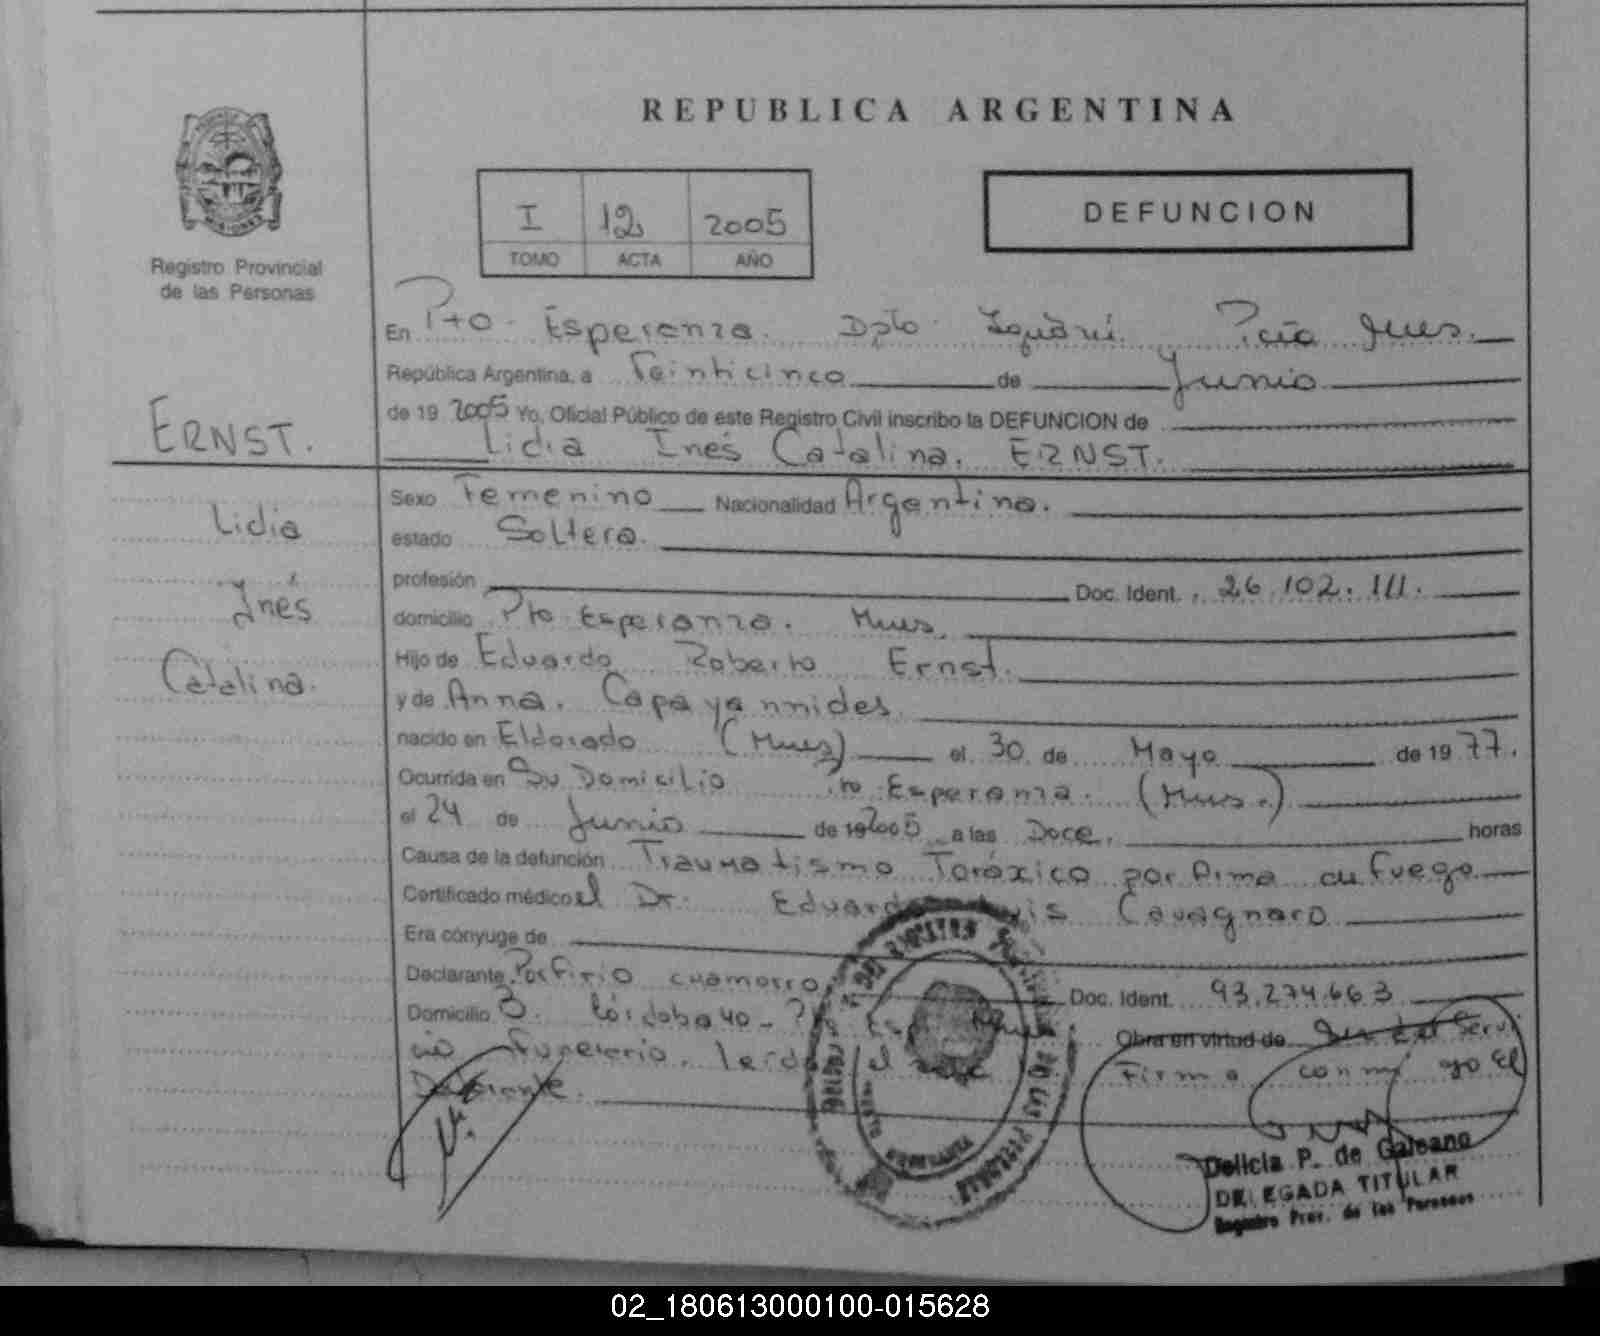 REPUBLICA ARGENTINA
MISIONES
Registro Provincial
de las Personas
I 12 2005
TOMO ACTA AÑO
DEFUNCION
En Pto. Esperanza. Dpto. Iguazú. Pcia
República Argentina, a Veinticinco de Junio
de 19 2005 Yo, Oficial Público de este Registro Civil inscribo la DEFUNCION de
Lidia Inés Catalina. ERNST.
ERNST.
Lidia
Inés
Catalina.
Sexo Femenino Nacionalidad Argentina.
estado Soltera.
profesión Doc. Ident. 26.102.111.
domicilio Pto Esperanza.
Hijo de Eduardo Roberto Ernst.
y de Anna. Capayannides
nacido en Eldorado el 30 de Mayo de 1977.
Ocurrida en Su Domicilio Pto Esperanza.
el 24 de Junio de 192005 a las Doce. horas
Causa de la defunción Traumatismo Toráxico por Arma de Fuego
Certificado médico el Dr: Eduardo Luis Cavagnaro
Era cónyuge de
Declarante Porfirio Chamorro Doc. Ident. 93.274.663
Domicilio B. Córdoba 40 - Pto Obra en virtud de Servi
cio Funerario. Leída el Firma conmigo El
Declarante.
Delicia P. de Galeano
DELEGADA TITULAR
Registro Prov. de las Personas
02_180613000100-015628